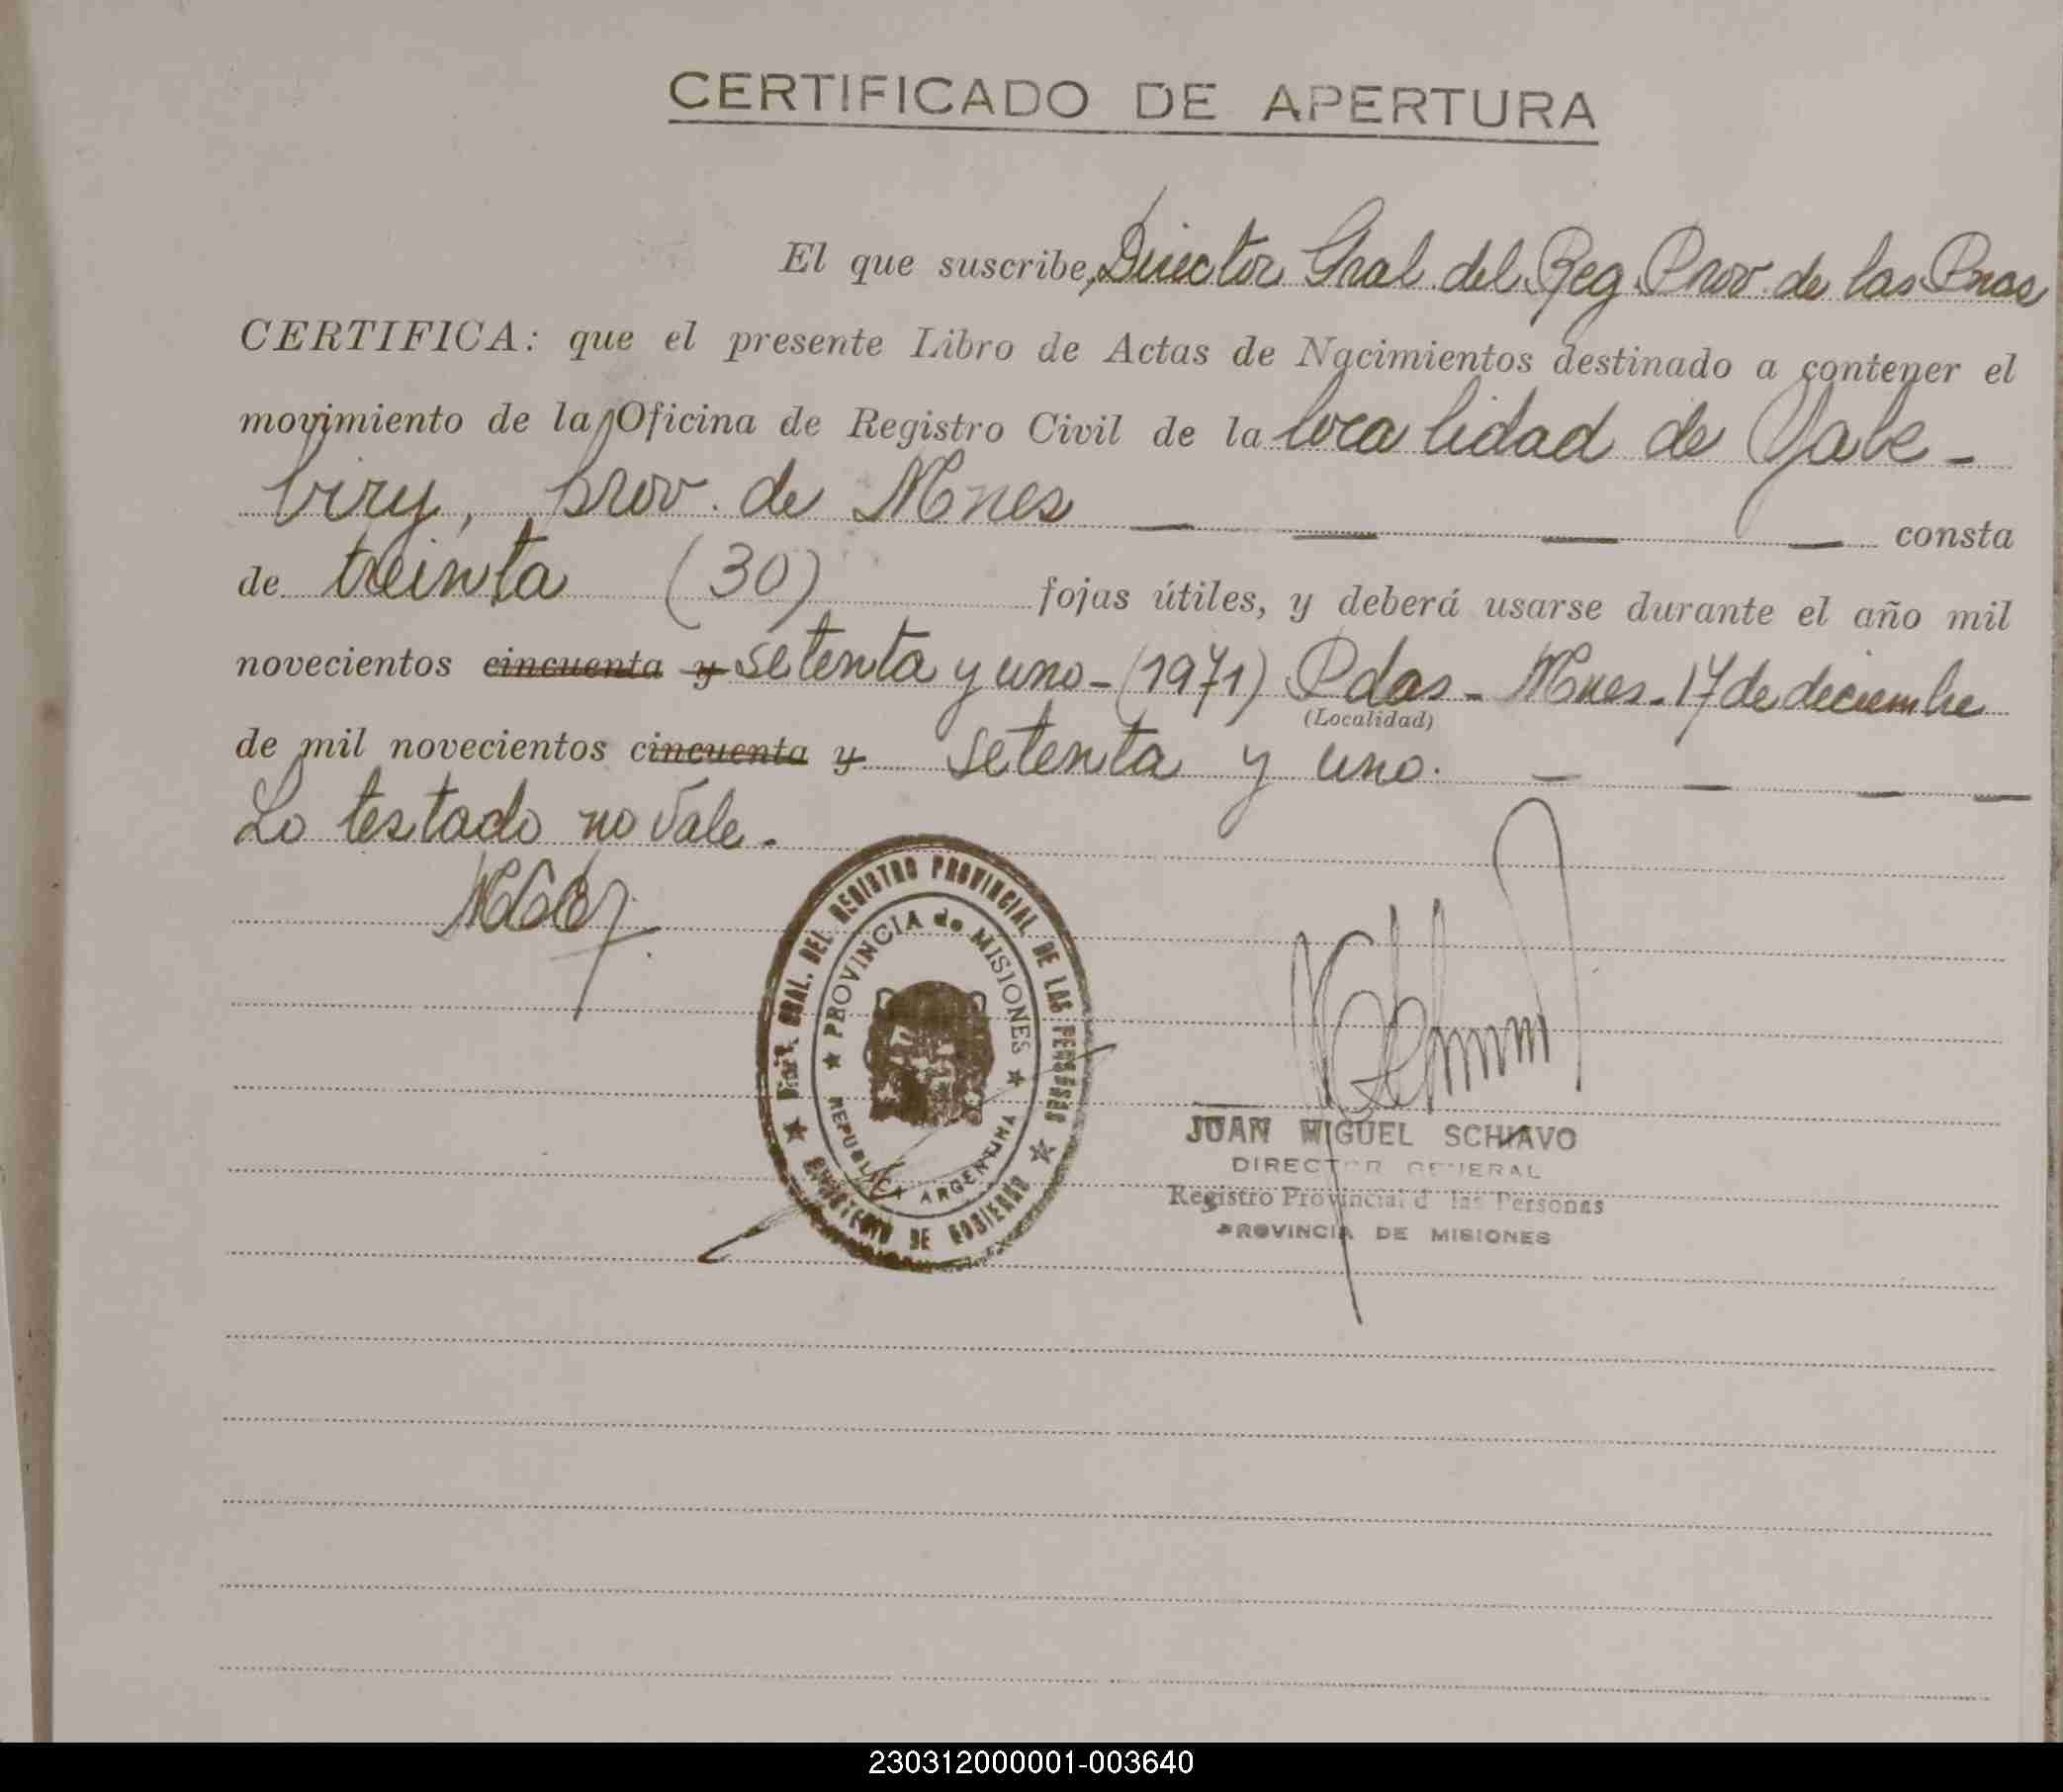 CERTIFICADO DE APERTURA
El que suscribe, Director Gral del Reg. Prov. de las Pnas
CERTIFICA: que el presente Libro de Actas de Nacimientos destinado a contener el
movimiento de la Oficina de Registro Civil de la localidad de Yabe-
biry, prov. de Mnes — — — — consta
de treinta (30) fojas útiles, y deberá usarse durante el año mil
novecientos cincuenta y setenta y uno - (1971) Pdas - Mnes. 17 de diciembre
(Localidad)
de mil novecientos cincuenta y setenta y uno. — — — —
Lo testado no vale.
DEL REGISTRO PROVINCIAL DE LAS PERSONAS
PROVINCIA de MISIONES
REPUBLICA ARGENTINA
MINISTERIO DE GOBIERNO
JUAN MIGUEL SCHIAVO
DIRECTOR GENERAL
Registro Provincial d las Personas
PROVINCIA DE MISIONES
230312000001-003640